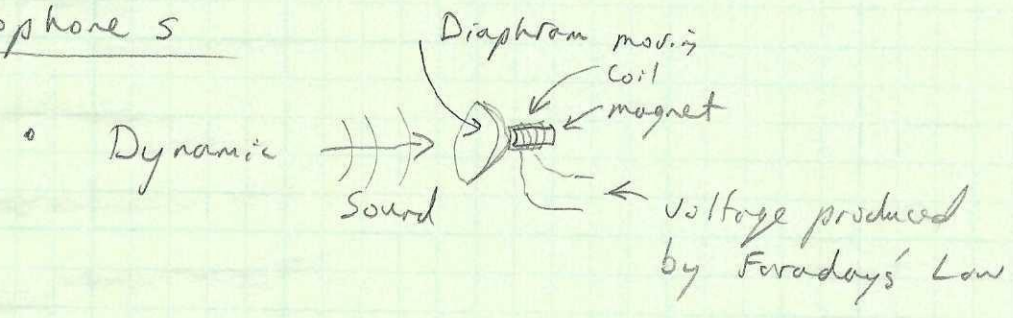 ophones
Diaphram moving
coil
magnet
• Dynamic
Sound
voltage produced
by Faradays' Law